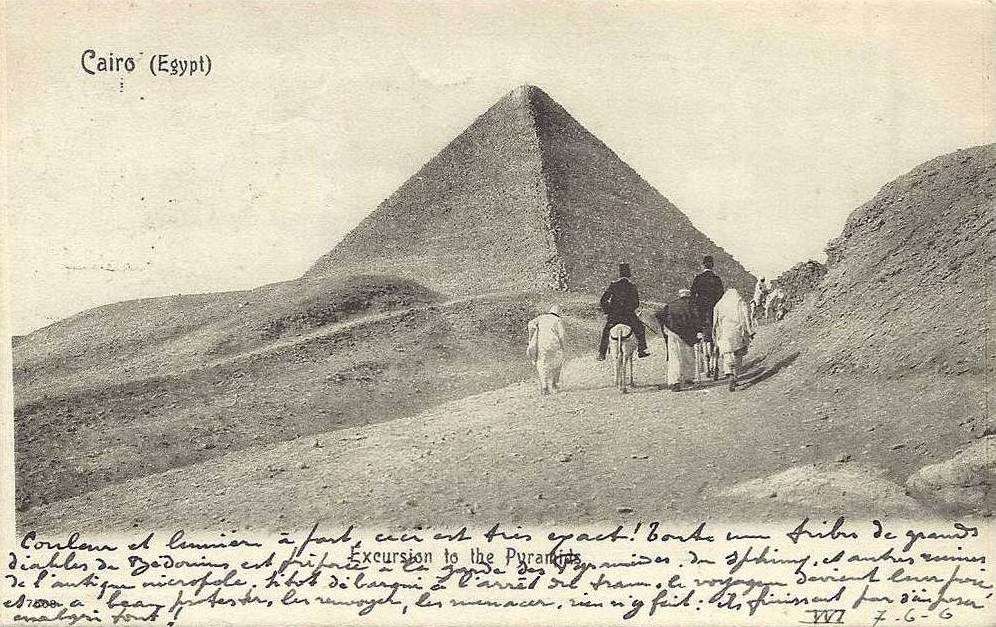 Cairo (Egypt)
Couleur et lumière à part, ceci est très exact! Toute une tribu de grands
Excursion to the Pyramids
diables de Bédouins est préposée à la garde des Pyramides, du Sphinx, et autres ruines
de l'antique nécropole. Sitôt débarqué à l'arrêt du tram, le voyageur devient leur proie
et on a beau protester, les renvoyer, les menacer, rien n'y fait: ils finissent par s'imposer
7500
malgré tout!
7-6-6